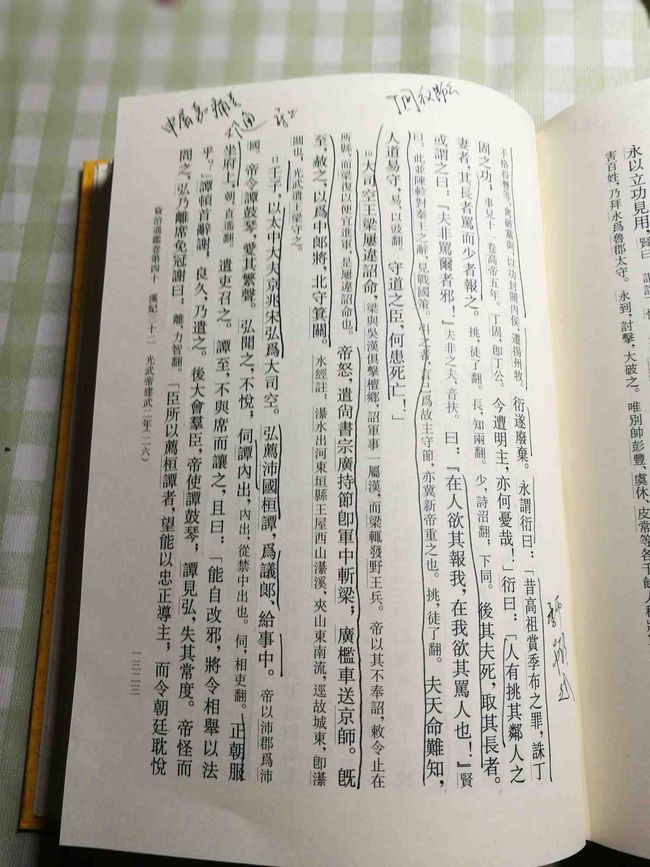 永以立功見用，
害百姓，乃拜永爲魯郡太守。永到，討擊，大破之。唯別帥彭豐、虞休、皮常等各千餘人稱
手格殺豐等，禽破黨與，以功封關內侯，遷揚州牧。衍遂廢棄。永謂衍曰：「昔高祖賞季布之罪，誅丁
固之功；事見十一卷高帝五年。丁固，卽丁公。今遭明主，亦何憂哉！」衍曰：「人有挑其鄰人之
妻者，其長者罵而少者報之。挑，徒了翻。長，知兩翻。少，詩沼翻。下同。後其夫死，取其長者。
或謂之曰：『夫非罵爾者邪！』夫非之夫，音扶。曰：『在人欲其報我，在我欲其罵人也！』賢
曰：此並陳軫對秦王之辭，見戰國策。引之者，言己爲故主守節，亦冀新帝重之也。挑，徒了翻。夫天命難知，
人道易守，易，以豉翻。守道之臣，何患死亡！」
10 大司空王梁屢違詔命，梁與吳漢俱擊檀鄉，詔軍事一屬漢，而梁輒發野王兵。帝以其不奉詔，敕令止在
所縣，而梁復以便宜進軍，是屢違詔命也。帝怒，遣尚書宗廣持節卽軍中斬梁；廣檻車送京師。旣
至，赦之，以爲中郎將，北守箕關。水經註：瀁水出河東垣縣王屋西山瀁溪，夾山東南流，逕故城東，卽瀁
關也，光武遣王梁守之。
11 壬子，以太中大夫京兆宋弘爲大司空。弘薦沛國桓譚，爲議郎、給事中。帝以沛郡爲沛
國。帝令譚鼓琴，愛其繁聲。弘聞之，不悅；伺譚內出，內出，從禁中出也。伺，相吏翻。正朝服
坐府上，朝，直遙翻。遣吏召之。譚至，不與席而讓之，且曰：「能自改邪，將令相舉以法
乎？」譚頓首辭謝；良久，乃遣之。後大會羣臣，帝使譚鼓琴；譚見弘，失其常度。帝怪而
問之，弘乃離席免冠謝曰：離，力智翻。「臣所以薦桓譚者，望能以忠正導主；而令朝廷耽悅
資治通鑑卷第四十　漢紀三十二　光武帝建武二年（二六）
一三二三